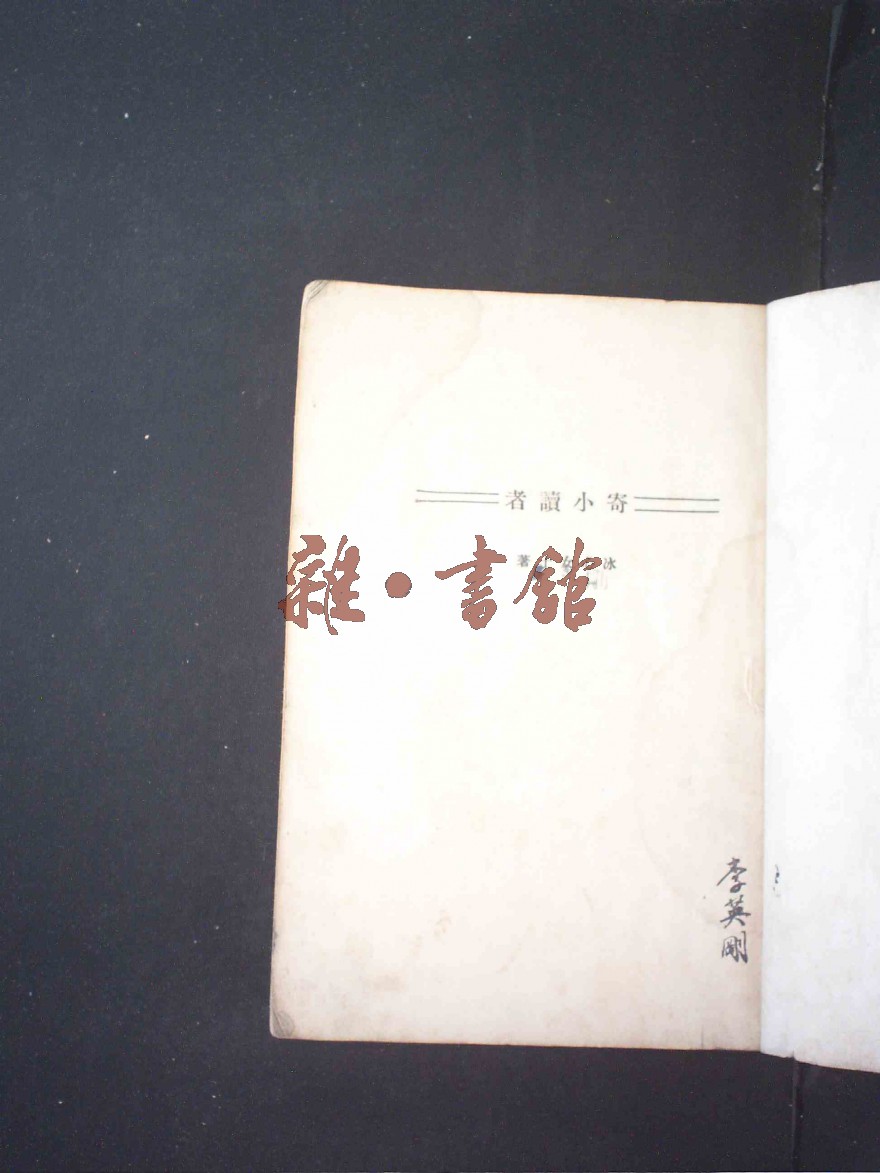 寄小讀者
冰 女 著
雜·書館
李英剛